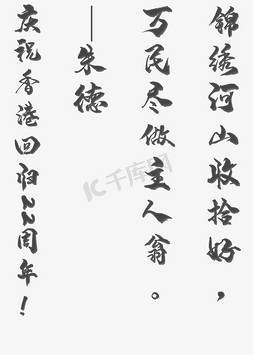 锦绣河山收拾好，
万民尽做主人翁。
——朱德
庆祝香港回归22周年！
IC千库网
588ku.com